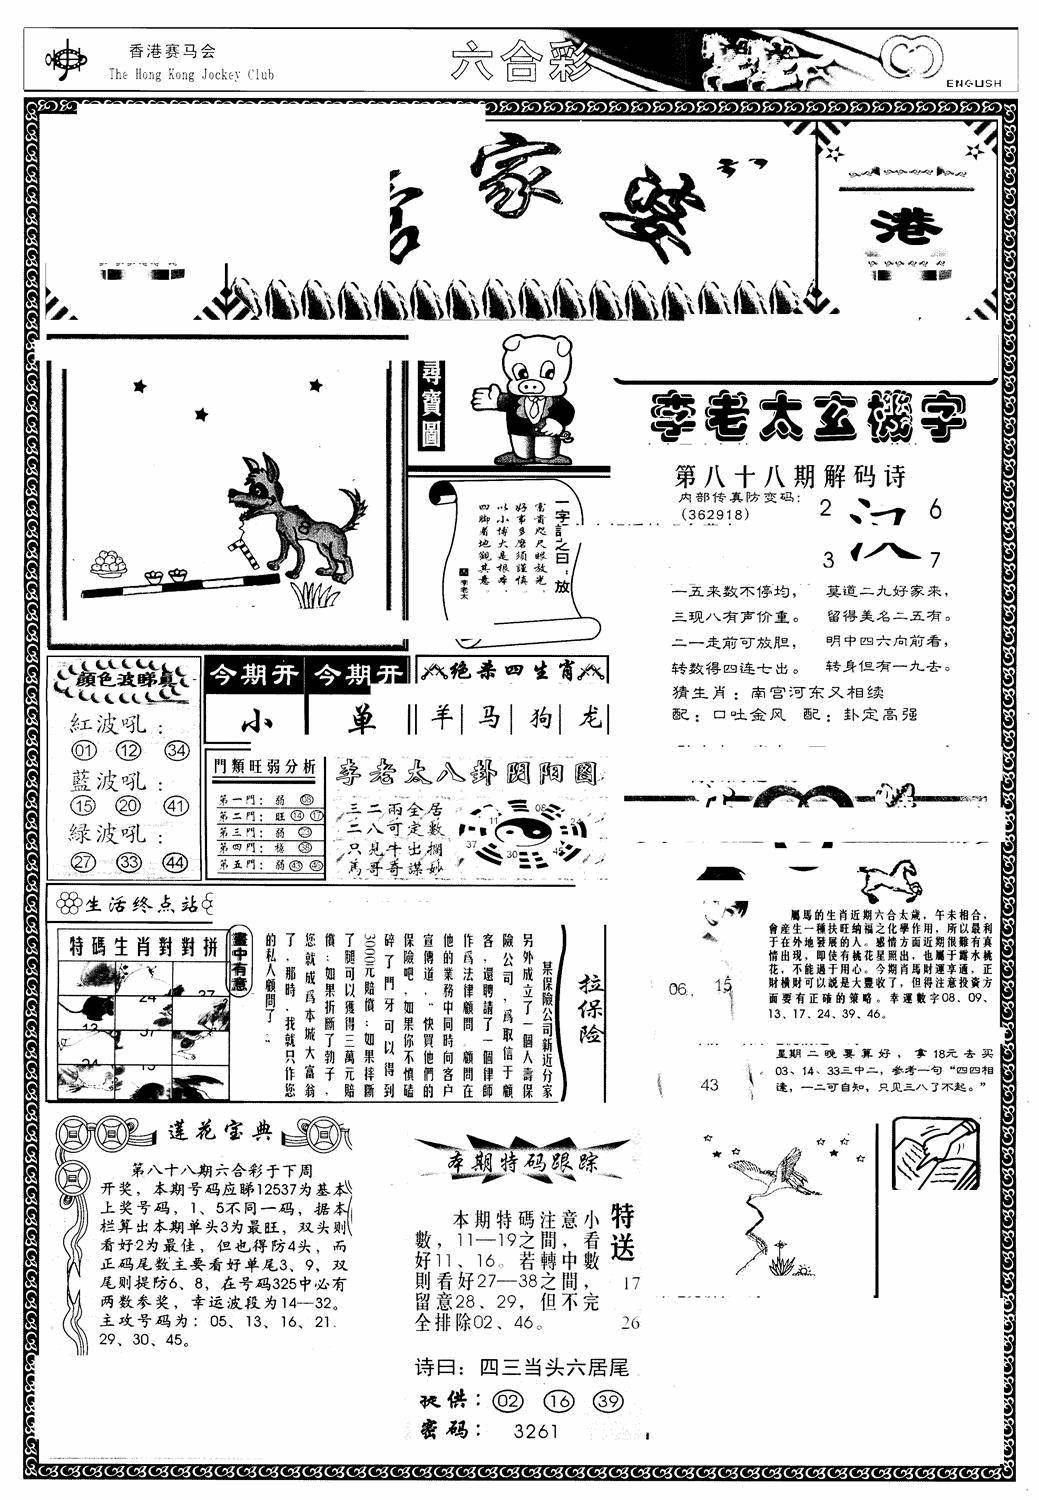 香港赛马会
The Hong Kong Jockey Club
六合彩
ENGLISH
家
港
尋寶圖
一字記之曰：放
四脚着地觀其意
李老太
李老太玄機字
第八十八期解码诗
内部传真防变码：
(362918)
2
6
3
7
一五来数不停均，
莫道二九好家来，
三现八有声价重。
留得美名二五有。
二一走前可放胆，
明中四六向前看，
转数得四连七出。
转身但有一九去。
猜生肖：南宫河东又相续
配：口吐金风 配：卦定高强
顏色波睇真
紅波吼：
01 12 34
藍波吼：
15 20 41
绿波吼：
27 33 44
今期开
小
今期开
单
绝杀四生肖
羊 马 狗 龙
門類旺弱分析
第一門：弱 08
第二門：旺 14 17
第三門：弱 23
第四門：穩 38
第五門：弱 43
李老太八卦阴阳图
三二兩全居
二八可定數
只見牛出欄
馬哥奇謀妙
08
11
24
37
30
45
生活终点站
特碼生肖對對拼
畫中有意
24
27
13
37
24
拉保險
某保險公司新近分家
另外成立了一個人壽保
險公司，爲取信于顧
客，還聘請了一個律師
作爲法律顧問。顧問在
他的業務中同時向客户
宣傳道，“快買他們的
保險吧，如果你不慎磕
碎了門牙可以得到
3000元賠償；如果摔斷
了腿可以獲得三萬元賠
償；如果折斷了勃子，
您就成爲本城大富翁
了，那時，我就只作您
的私人顧問了。
屬馬的生肖近期六合太歲，午未相合，
會産生一種扶旺納福之化學作用，所以最利
于在外地發展的人。感情方面近期很難有真
情出現，即使有桃花星照出，也屬于露水桃
花，不能過于用心。今期肖馬財運享通，正
財横財可以説是大豐收了，但得注意投資方
面要有正確的策略。幸運數字08、09、
13、17、24、39、46。
06、15
43
星期二晚要算好，拿18元去买
03、14、33三中二，参考一句“四四相
逢，一二可自知，只见三八了不起。”
莲花宝典
第八十八期六合彩于下周
开奖，本期号码应睇12537为基本
上奖号码，1、5不同一码，据本
栏算出本期单头3为最旺，双头则
看好2为最佳，但也得防4头，而
正码尾数主要看好单尾3、9，双
尾则提防6、8，在号码325中必有
两数参奖，幸运波段为14—32。
主攻号码为：05、13、16、21、
29、30、45。
本期特码跟踪
本期特碼注意小
數，11—19之間，看
好11、16。若轉中數
則看好27—38之間，
留意28、29，但不完
全排除02、46。
特送
17
26
诗曰：四三当头六居尾
提供：02 16 39
密码：3261